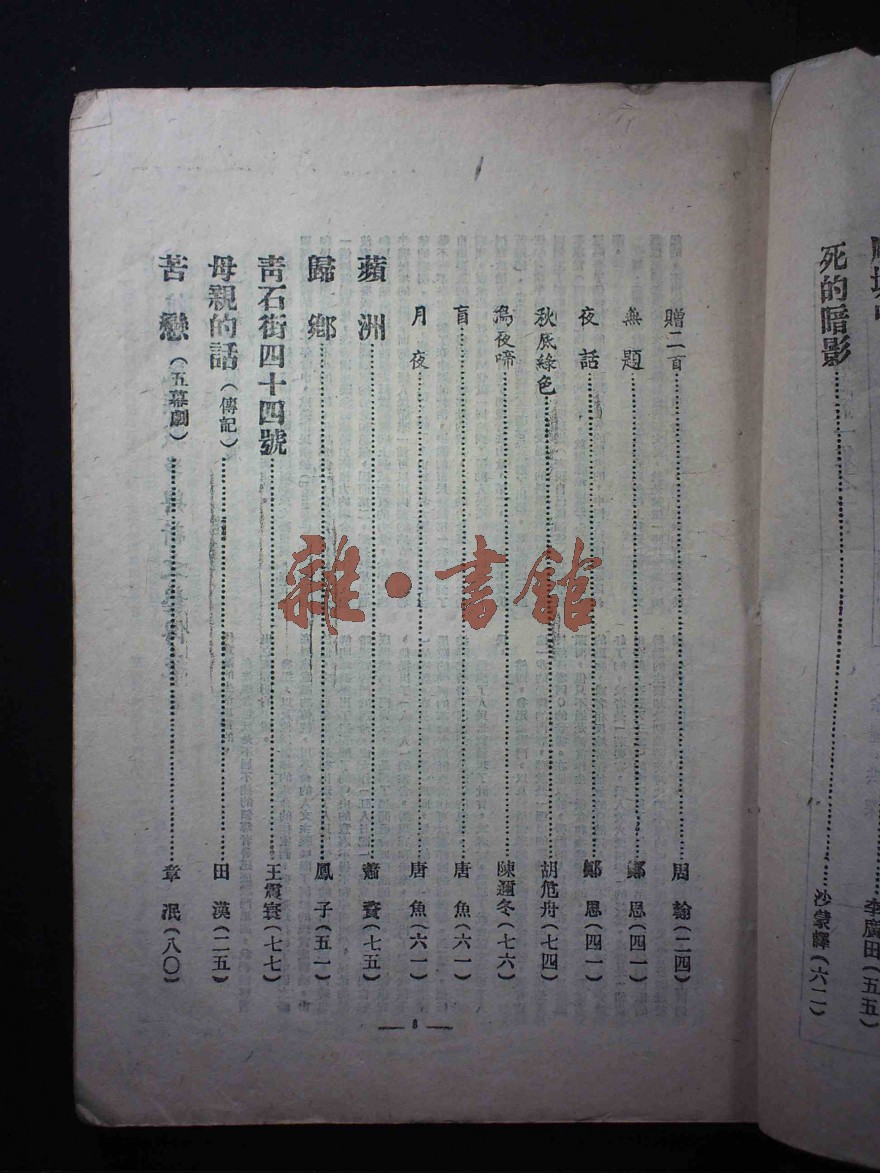 李廣田(五五)
死的暗影……沙蒙譯(六二)
贈二首……周翰(二四)
無題……鄭思(四一)
夜話……鄭思(四一)
秋底綠色……胡危舟(七四)
夜啼……陳邇冬(七六)
盲……唐魚(六一)
月夜……唐魚(六一)
蘋洲……蕭賚(七五)
歸鄉……鳳子(五一)
靑石街四十四號……王震寰(七七)
母親的話(傳記)……田漢(二五)
苦戀(五幕劇)……章泯(八〇)
— 8 —
雜·書館